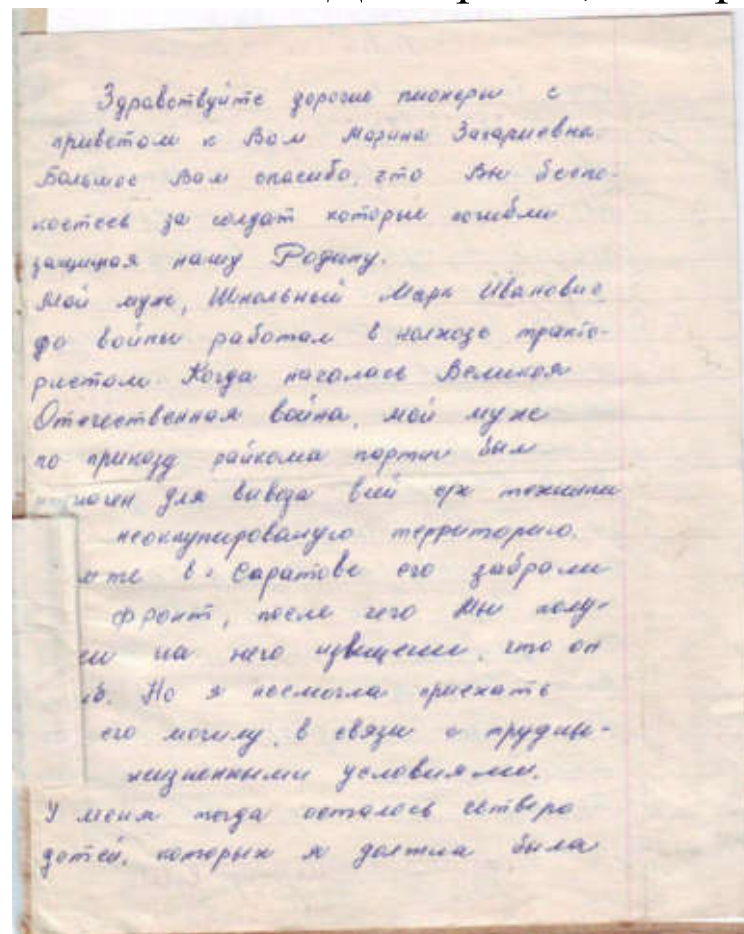 Здравствуйте дорогие пионеры с
приветом к Вам Марина Захариевна.
Большое Вам спасибо, что Вы беспо-
коетесь за солдат которые погибли
защищая нашу Родину.
Мой муж, Школьный Марк Иванович,
до войны работал в колхозе тракто-
ристом. Когда началась Великая
Отечественная война, мой муж
по приказу райкома партии был
для вывоза всей с/х техники
неоккупированую территорию.
в г. Саратове его забрали
фронт, после чего мы полу-
на него извещение, что он
Но я несмогла приехать
его могилу, в связи с трудны-
жизненными условиями.
У меня тогда осталось четверо
детей, которых я должна была